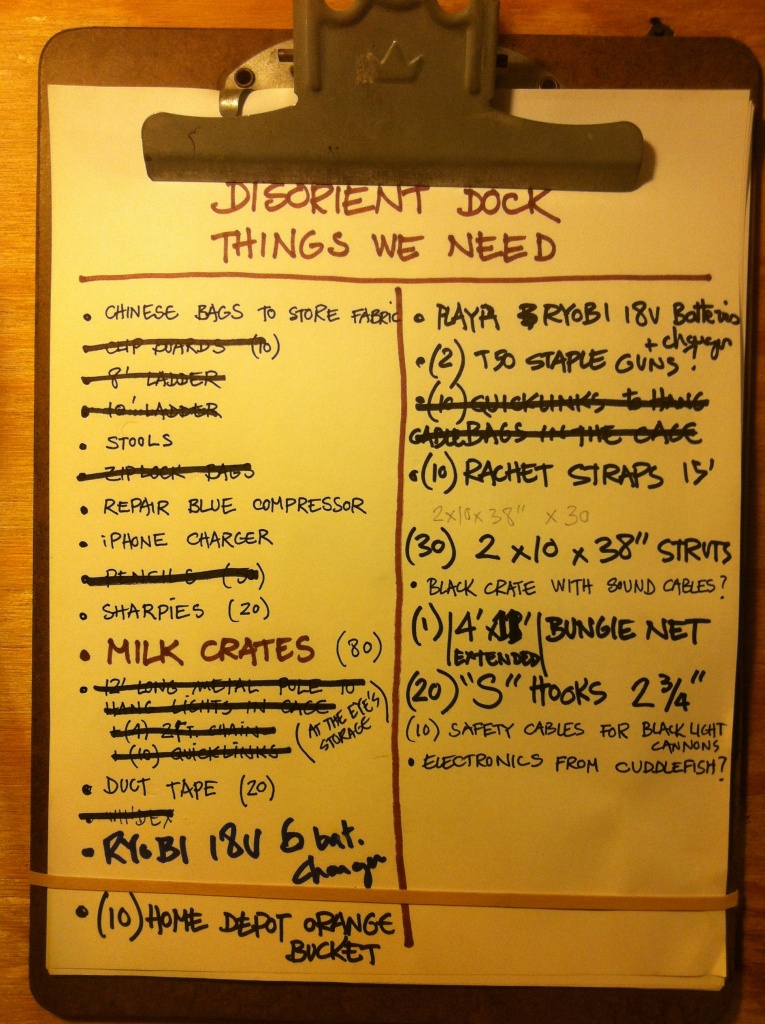 DISORIENT DOCK
THINGS WE NEED
• CHINESE BAGS TO STORE FABRIC
CLIP BOARDS (10)
8' LADDER
10' LADDER
• STOOLS
ZIPLOCK BAGS
• REPAIR BLUE COMPRESSOR
• iPHONE CHARGER
PENCILS
• SHARPIES (20)
• MILK CRATES (80)
• 12' LONG METAL POLE TO
HANG LIGHTS IN CAGE
+(4) 2FT. CHAIN
+(10) QUICKLINKS
(AT THE EYE'S
STORAGE)
• DUCT TAPE (20)
WINDEX
• RYOBI 18V 6 bat.
charger
• (10) HOME DEPOT ORANGE
BUCKET
• PLAYA RYOBI 18V Batteries
+ charger
• (2) T50 STAPLE GUNS.
• (10) QUICKLINKS to HANG
CABLE BAGS IN THE CAGE
• (10) RACHET STRAPS 15'
2x10x38" x 30
(30) 2 x10 x 38" STRUTS
• BLACK CRATE WITH SOUND CABLES?
(1) 4' X BUNGIE NET
EXTENDED
(20) "S" HOOKS 2 3/4"
(10) SAFETY CABLES FOR BLACKLIGHT
CANNONS
• ELECTRONICS FROM CUDDLEFISH?